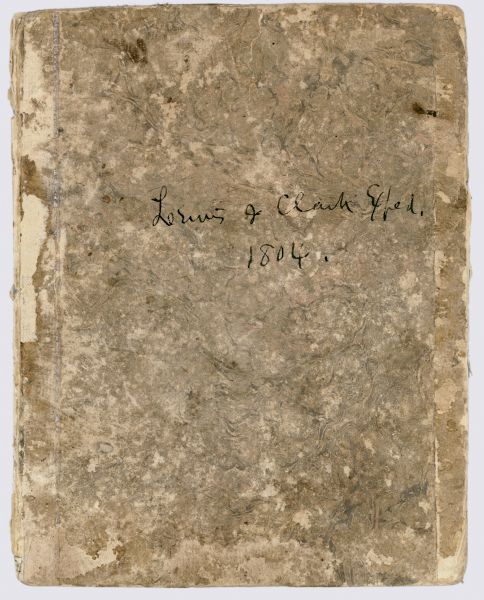 Lewis & Clark Exped.
1804.